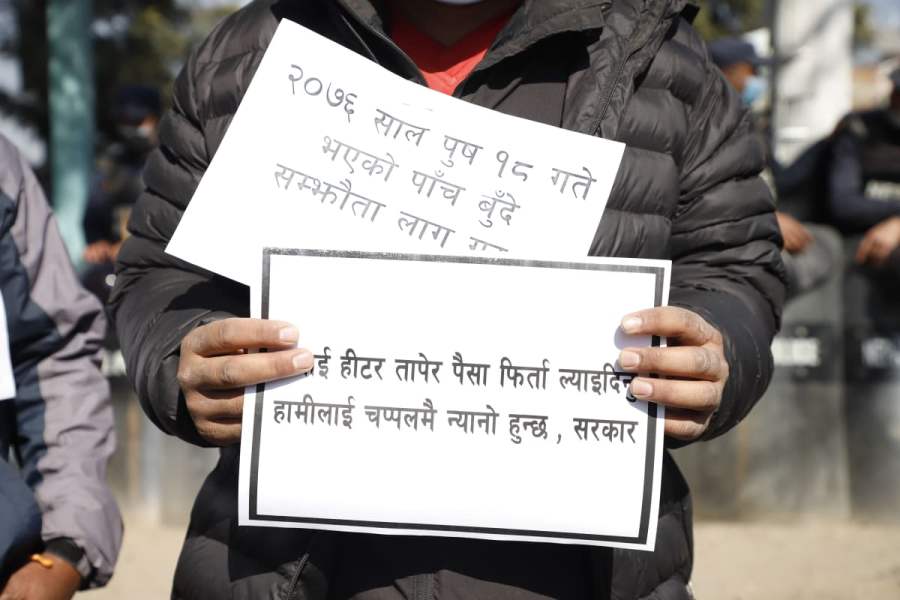 २०७६ साल पुष १८ गते
भएको पाँच बुँदे
सम्झौता लाग
हीटर तापेर पैसा फिर्ता
हामीलाई चप्पलमै न्यानो हुन्छ , सरकार